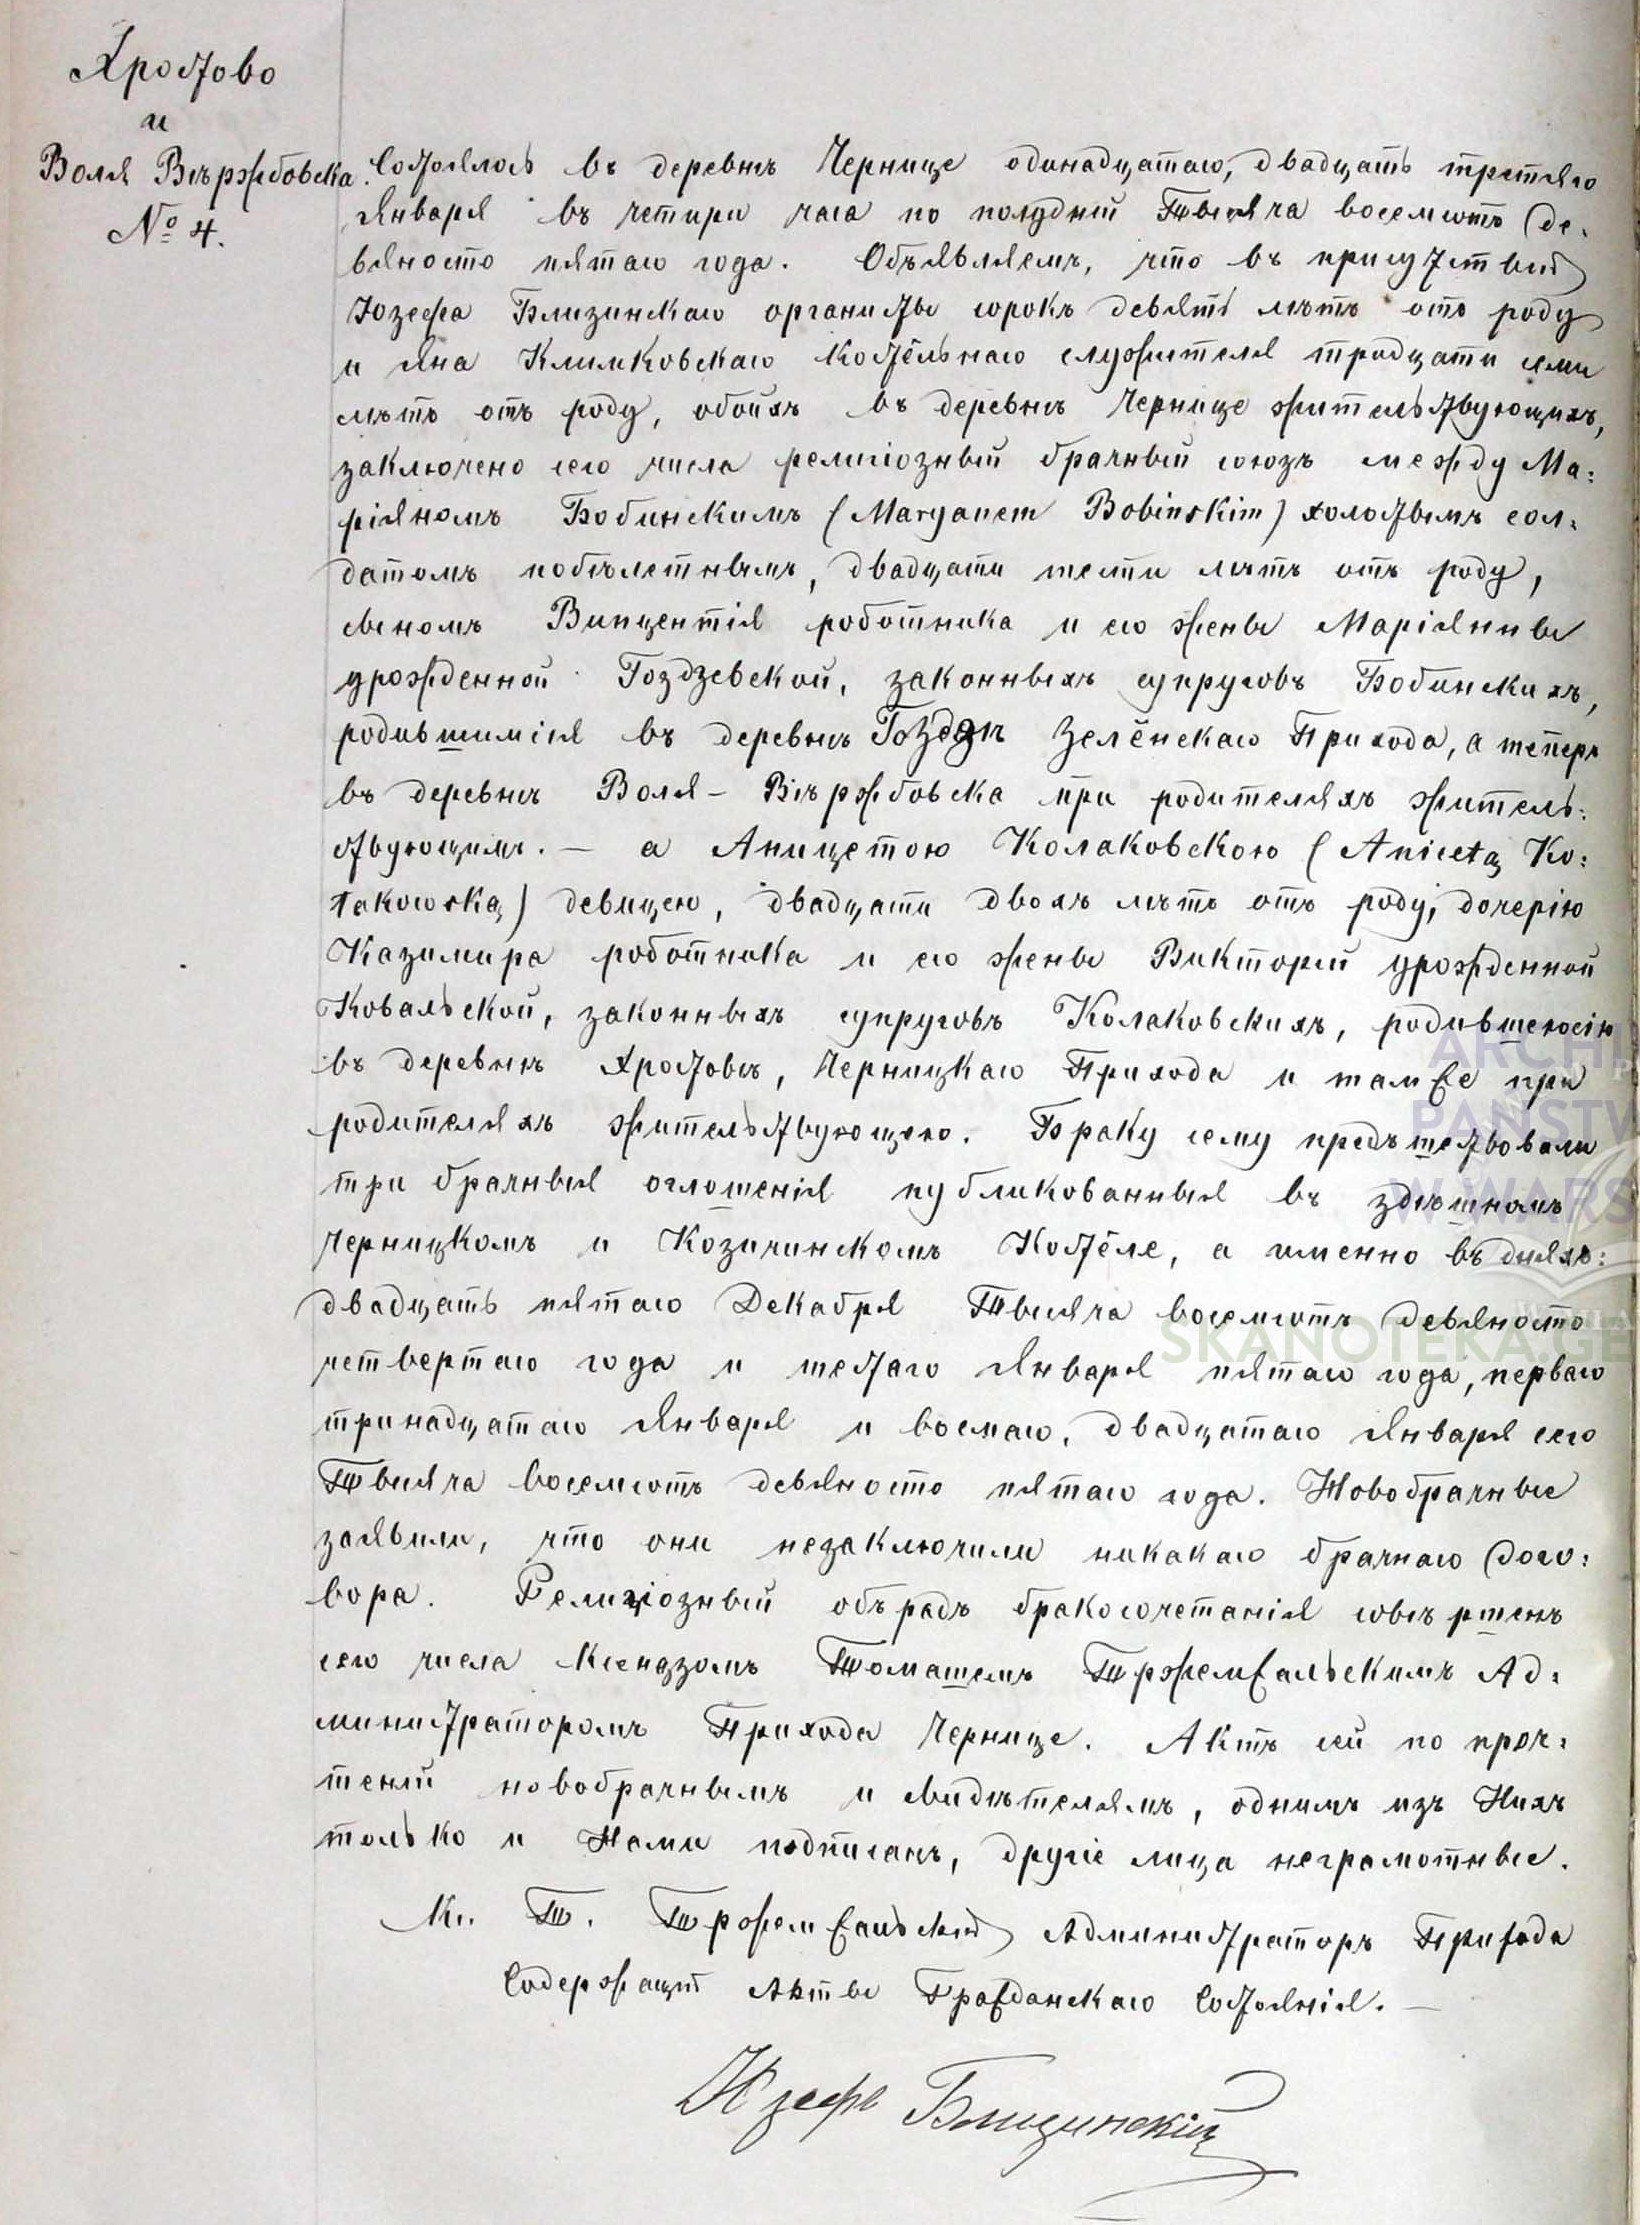 Хростово
и
Воля Вѣржбовска.
№ 4.
Состоялось въ деревнѣ Чернице одинадцатаго, двадцать третяго
Января въ четыри часа по полудній Тысяча восемсотъ де-
вяносто пятаго года. Объявляемъ, что въ присутствій
Юзефа Близинскаго органисты сорокъ девять лѣтъ отъ роду
и Яна Климковскаго костёльнаго служителя тридцати семи
лѣтъ отъ роду, обоихъ въ деревнѣ Чернице жительствующихъ,
заключено сего числа религіозный брачный союзъ между Ма-
ріяномъ Бобинскимъ (Maryanem Bobinskim) холостымъ сол-
датомъ побилетнымъ, двадцати шести лѣтъ отъ роду,
сыномъ Винцентія роботника и его жены Маріянны
урожденной Гоздзевской, законныхъ супруговъ Бобинскихъ,
родившимсія въ деревнѣ Гоздѣ Зелёнскаго Прихода, а теперь
въ деревнѣ Воля - Вѣржбовска при родителяхъ житель-
ствующимъ. — а Аницетою Колаковскою (Anicetą Ko-
łakowską) девицею, двадцати двохъ лѣтъ отъ роду, дочерію
Казимира роботника и его жены Викторій урожденной
Ковальской, законныхъ супруговъ Колаковскихъ, родившеюсію
въ деревнѣ Хростовѣ, Черницкаго Прихода и тамже при
родителяхъ жительствующею. Браку сему предъшествовали
три брачныя оглошенія публикованныя въ здѣшномъ
Черницкомъ и Козичинскомъ Костёле, а именно въ дняхъ:
двадцать пятаго Декабря Тысяча восемсотъ девяносто
четвертаго года и шестаго Января пятаго года, перваго
тринадцатаго Января и восмаго, двадцатаго Января сего
Тысяча восемсотъ девяносто пятаго года. Новобрачные
заявили, что они незаключили никакаго брачнаго дого-
вора. Религіозный обърядъ бракосочетанія совѣршенъ
сего числа Ксендзомъ Томашемъ Тржемжальскимъ Ад-
министраторомъ Прихода Чернице. Актъ сей по проч-
теній новобрачнымъ и свидѣтелямъ, однимъ изъ Нихъ
только и Нами подписанъ, другіе лица неграмотные.
Кс. Т. Тржемжальскій Администраторъ Прихода
Содержащій Акты Гражданскаго Состоянія. —
Юзефъ Близинскій
ARCHI
PAŃSTW
W WARS
SKANOTEKA.GE